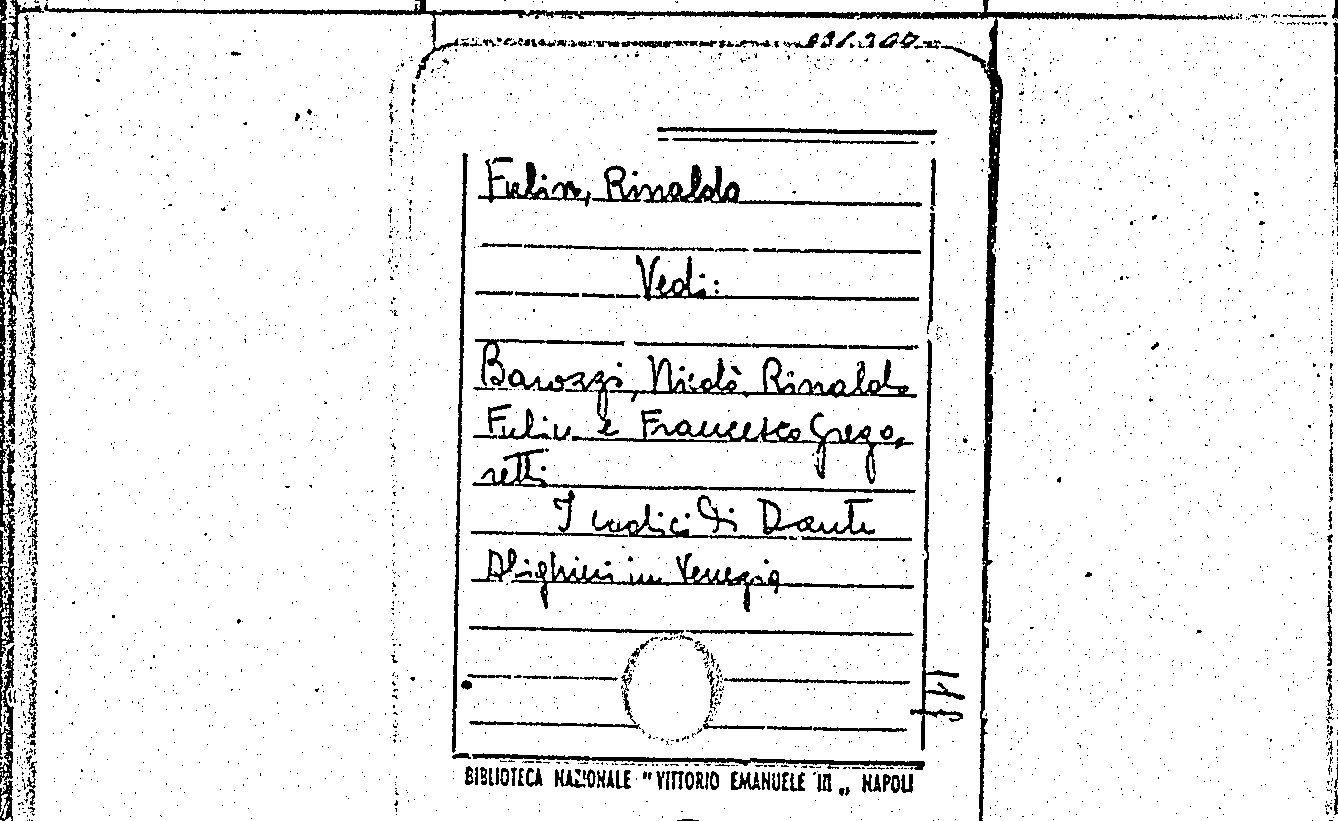 Fulin, Rinaldo
Vedi:
Barozzi, Nicolò Rinaldo
Fulin e Francesco Grego-
retti
I codici di Dante
Alighieri in Venezia
BIBLIOTECA NAZIONALE "VITTORIO EMANUELE III„ NAPOLI